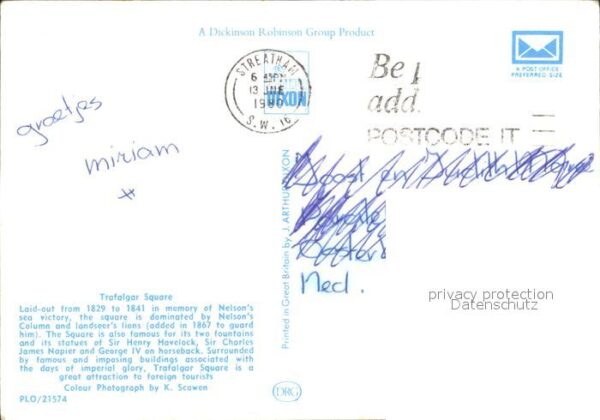 A Dickinson Robinson Group Product
A POST OFFICE
PREFERRED SIZE
STREATHAM
13 JNE
1980
S.W. 16
DIXON
Be
add
POSTCODE IT
groetjes
miriam
Ned.
Printed in Great Britain by J. ARTHUR DIXON
privacy protection
Datenschutz
Trafalgar Square
Laid-out from 1829 to 1841 in memory of Nelson's
sea victory, the square is dominated by Nelson's
Column and landseer's liens (added in 1867 to guard
him). The Square is also famous for its two fountains
and its statues of Sir Henry Havelock, Sir Charles
James Napier and George IV on horseback. Surrounded
by famous and imposing buildings associated with
the days of imperial glory, Trafalgar Square is a
great attraction to foreign tourists
Colour Photograph by K. Scowen
PLO/21574
DRG